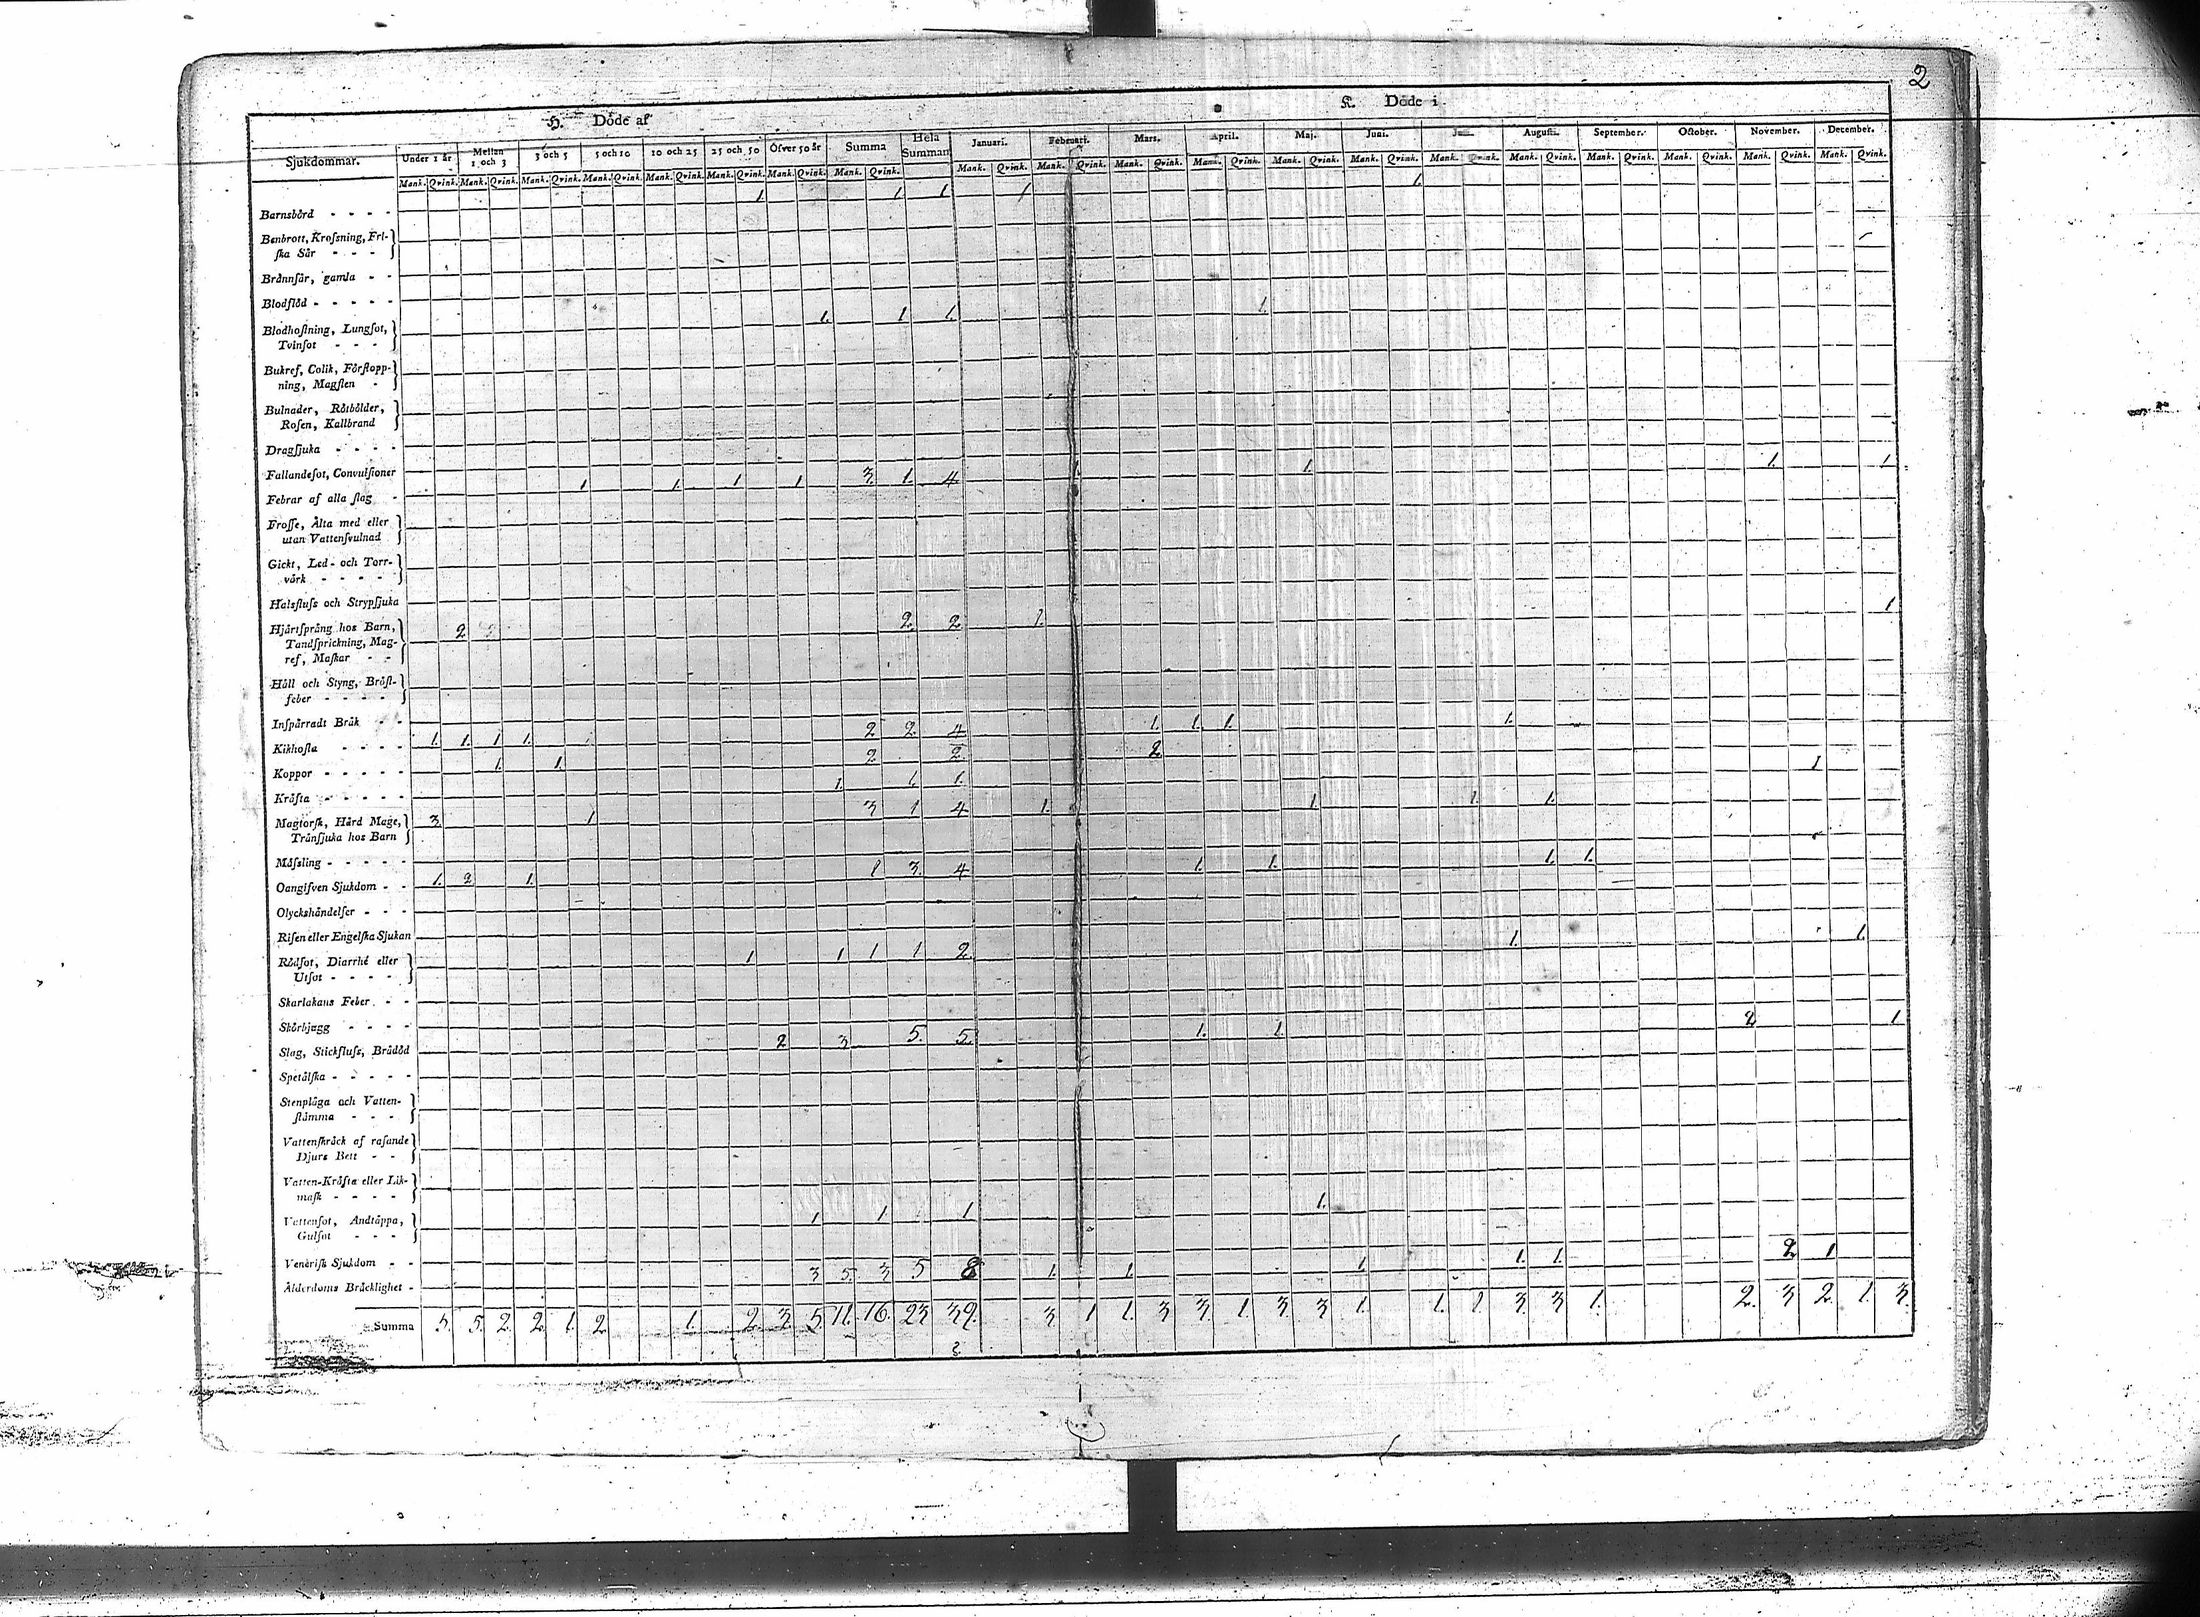 2
H. Döde af
K. Döde i
Sjukdommar. Under 1 år Mellan 1 och 3 3 och 5 5 och 10 10 och 25 25 och 50 Öfver 50 år Summa Hela Summan Januari. Februari. Mars. April. Maj. Juni. Augusti. September. October. November. December.
Mank. Qvink. Mank. Qvink. Mank. Qvink. Mank. Qvink. Mank. Qvink. Mank. Qvink. Mank. Qvink. Mank. Qvink. Mank. Qvink. Mank. Qvink. Mank. Qvink. Mank. Qvink. Mank. Qvink. Mank. Qvink. Mank. Qvink. Mank. Qvink. Mank. Qvink. Mank. Qvink. Mank. Qvink. Mank. Qvink.
Barnsbörd - - - - 1. 1 1 1 1.
Benbrott, Krofsning, Fri-
ſka Sår - - -
Brännſår, gamla - -
Blodflöd - - - - -
Blodhoſtning, Lungſot, 1. 1 1. 1.
Tvinſot - - -
Bukref, Colik, Förſtopp-
ning, Magſten -
Bulnader, Rötbölder,
Roſen, Kallbrand
Dragſjuka - - - -
Fallandeſot, Convulſioner
Febrar af alla ſlag - 1 1. 1 1. 3. 1. 4 1. 1. 1.
Froſſe, Älta med eller
utan Vattenſvulnad
Gickt, Led- och Torr-
värk - - - - -
Halsfluſs och Strypſjuka
Hjärtſprång hos Barn, 2 2. 2 1. 1
Tandſprickning, Mag-
ref, Maſkar - -
Håll och Styng, Bröſt-
feber - - - -
Inſpärradt Bråk - -
Kikhoſta - - - - 1. 1. 1 1. 2 2. 4 1. 1. 1. 1.
Koppor - - - - - 1. 1. 2. 2. 2
Kräfta - - - - - 1. 1. 1
Magtorſk, Hård Mage, 3. 1 3 1 4 1. 1. 1. 1.
Tränſjuka hos Barn
Mäſsling - - - - -
Oangifven Sjukdom - - 1. 2 1. 1 3. 4 1. 1. 1. 1.
Olyckshändelſer - - -
Riſen eller Engelſka Sjukan
Rödſot, Diarrhé eller 1 1 1 1 2. 1. 1.
Utſot - - - -
Skarlakans Feber - -
Skörbjugg - - - -
Slag, Stickfluſs, Brådöd 2 3 5. 5. 1. 1. 2 1
Spetälſka - - - - -
Stenplåga och Vatten-
ſtämma - - -
Vattenſkräck af raſande
Djurs Bett - -
Vatten-Kräfta eller Lik-
maſk - - - -
Vattenſot, Andtäppa, 1 1 1 1.
Gulſot - - -
Veneriſk Sjukdom - -
Ålderdoms Bräcklighet - 3 5 3 5 8 1. 1. 1 1. 1. 2 1
Summa 5. 5. 2. 2. 1. 2. 1. 2. 3. 5. 11. 16. 23 39. 3 1 1. 3 3. 1. 3 3 1. 1. 1 3 3 1. 2. 3 2. 1. 3.